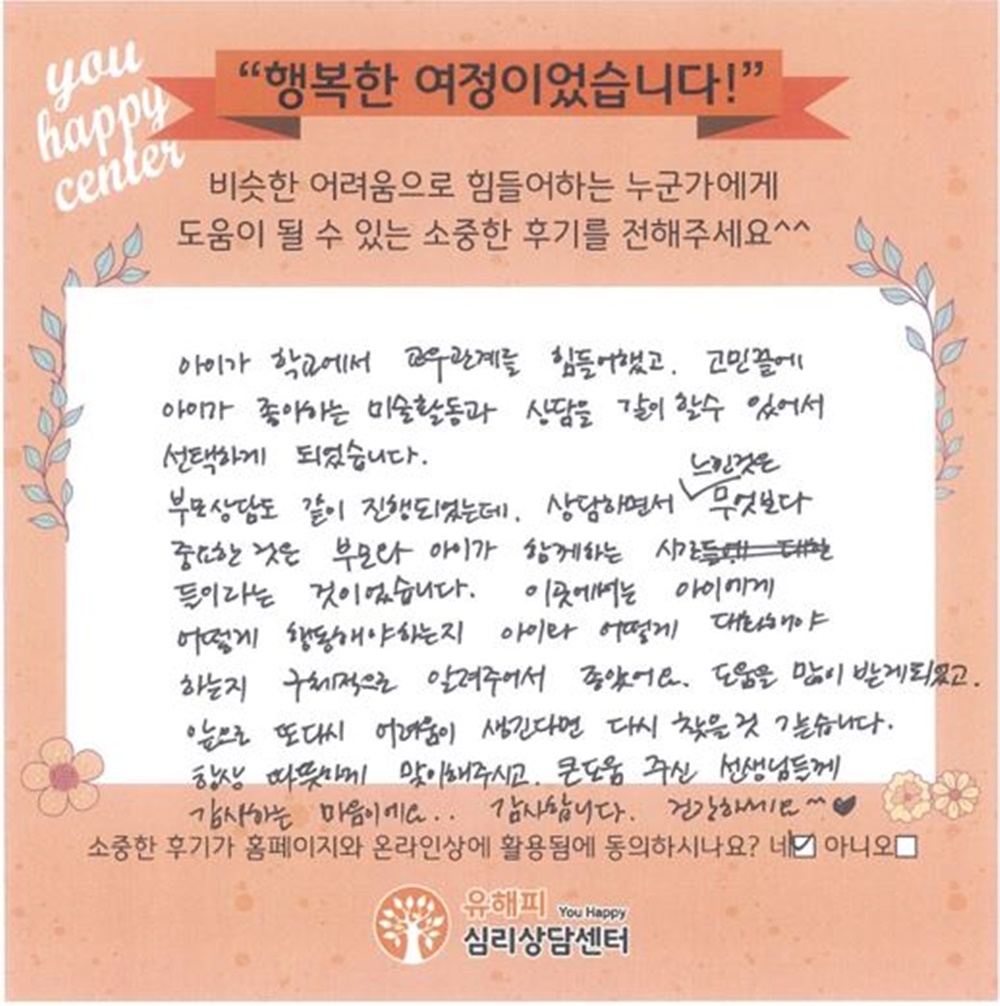 you
happy
center
“행복한 여정이었습니다!”
비슷한 어려움으로 힘들어하는 누군가에게
도움이 될 수 있는 소중한 후기를 전해주세요^^
아이가 학교에서 교우관계를 힘들어했고. 고민끝에
아이가 좋아하는 미술활동과 상담을 같이 할수 있어서
선택하게 되었습니다.
느낀것은
부모상담도 같이 진행되었는데. 상담하면서 무엇보다
중요한 것은 부모와 아이가 함께하는 시간
들이라는 것이었습니다. 이곳에서는 아이에게
어떻게 행동해야하는지 아이와 어떻게 대화해야
하는지 구체적으로 알려주어서 좋았어요. 도움을 많이 받게되었고.
앞으로 또다시 어려움이 생긴다면 다시 찾을것 같습니다.
항상 따뜻하게 맞이해주시고. 큰도움 주신 선생님들께
감사하는 마음이에요.. 감사합니다. 건강하세요^^♥
소중한 후기가 홈페이지와 온라인상에 활용됨에 동의하시나요? 네☑ 아니오□
유해피 You Happy
심리상담센터